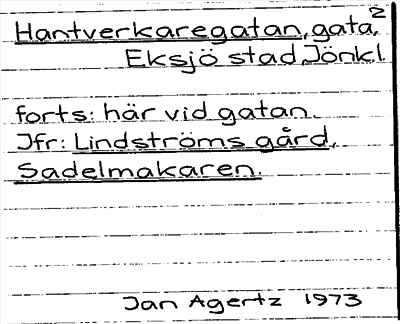 Hantverkaregatan, gata, 2
Eksjö stad, Jönk.l.
forts: här vid gatan.
Jfr: Lindströms gård,
Sadelmakaren.
Jan Agertz 1973